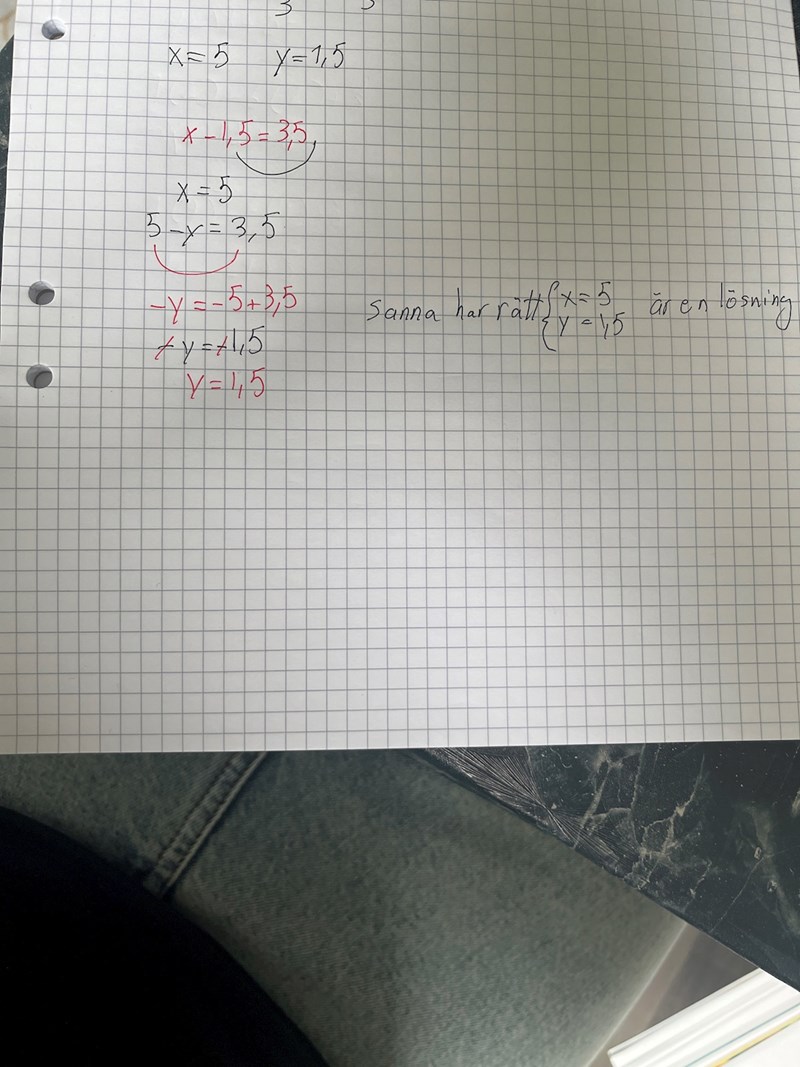 3
x=5 y=1,5
x-1,5=3,5
x=5
5-y=3,5
-y=-5+3,5
-y=-1,5
y=1,5
Sanna har rätt { x=5 är en lösning
y=1,5